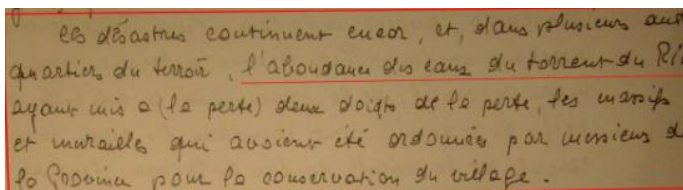 les désastres continuent encor, et, dans plusieurs aut
quartiers du terroir, l'abondance des eaux du torrent du Ri
ayant mis a (la perte) deux doigts de la perte, les massifs
et murailes qui avoient été ordonnées par messieurs d
la Province pour la conservation du village.